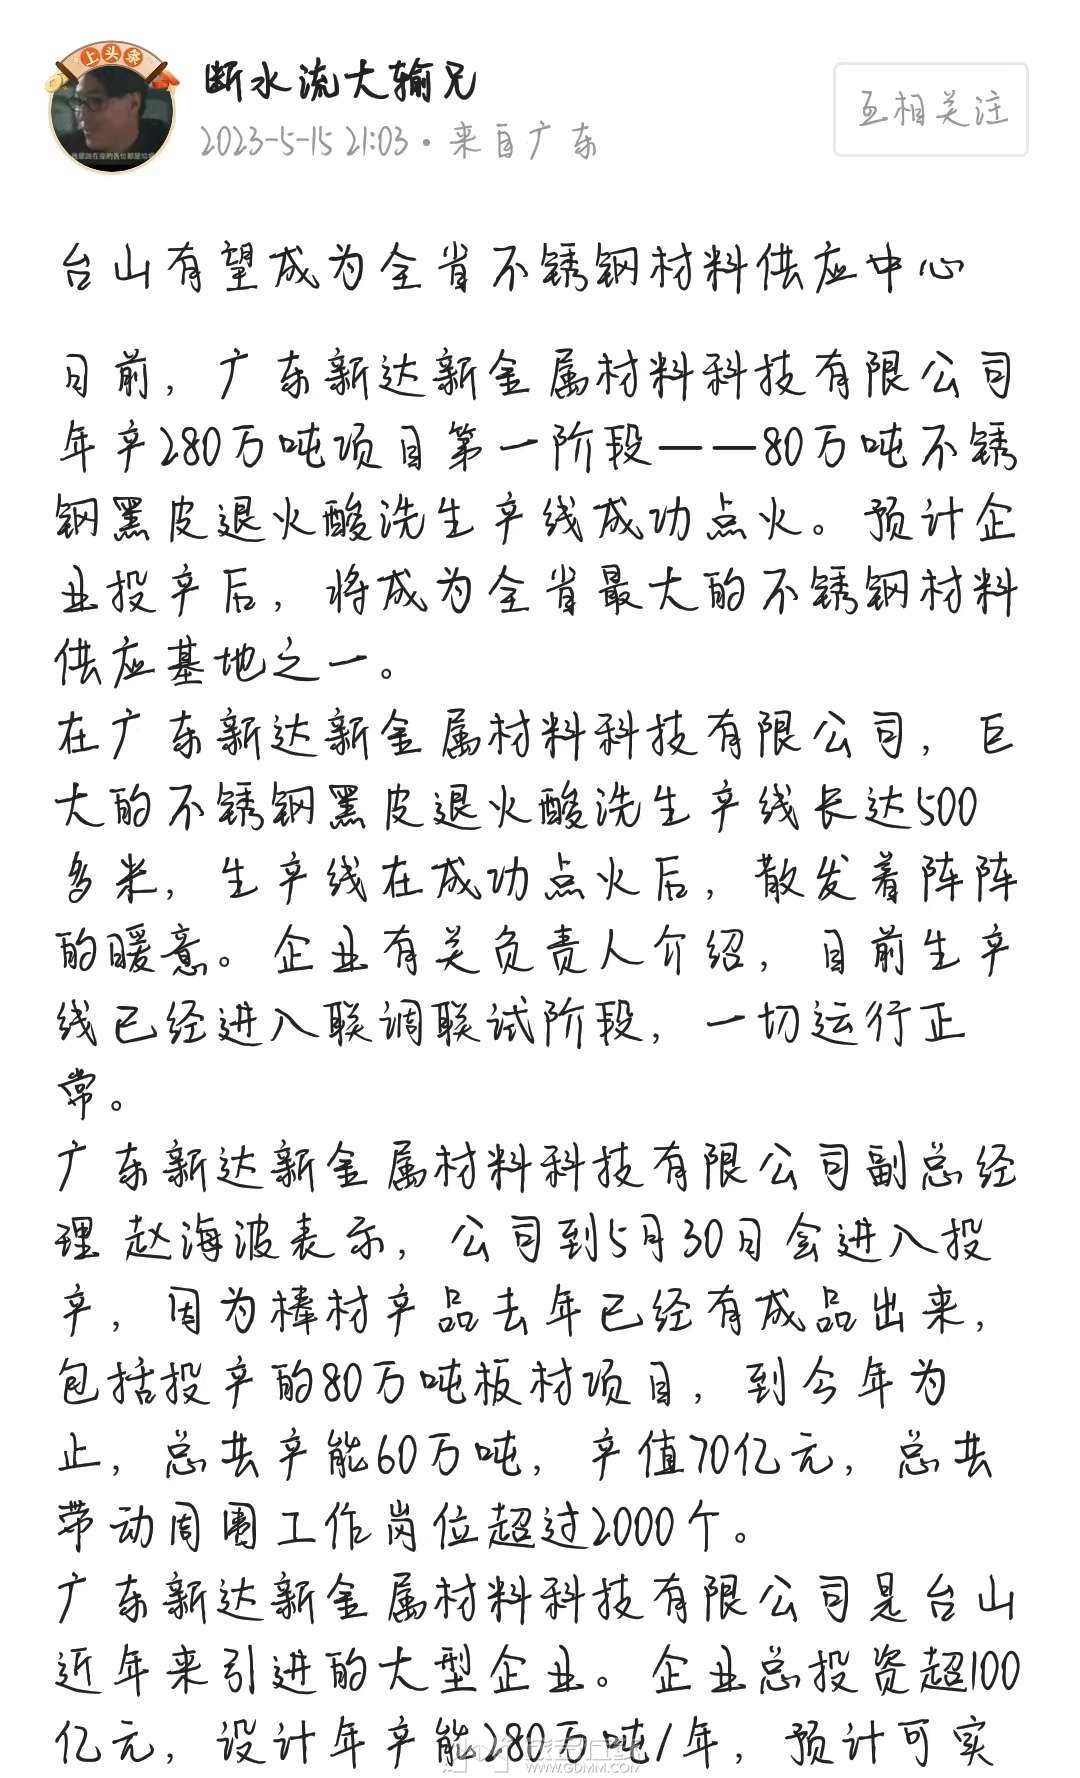 上头条
断水流大输兄
2023-5-15 21:03·来自广东
互相关注
台山有望成为全省不锈钢材料供应中心
日前，广东新达新金属材料科技有限公司
年产280万吨项目第一阶段——80万吨不锈
钢黑皮退火酸洗生产线成功点火。预计企
业投产后，将成为全省最大的不锈钢材料
供应基地之一。
在广东新达新金属材料科技有限公司，巨
大的不锈钢黑皮退火酸洗生产线长达500
多米，生产线在成功点火后，散发着阵阵
的暖意。企业有关负责人介绍，目前生产
线已经进入联调联试阶段，一切运行正
常。
广东新达新金属材料科技有限公司副总经
理 赵海波表示，公司到5月30日会进入投
产，因为棒材产品去年已经有成品出来，
包括投产的80万吨板材项目，到今年为
止，总共产能60万吨，产值70亿元，总共
带动周围工作岗位超过2000个。
广东新达新金属材料科技有限公司是台山
近年来引进的大型企业。企业总投资超100
亿元，设计年产能280万吨/年，预计可实
WWW.GDMM.COM